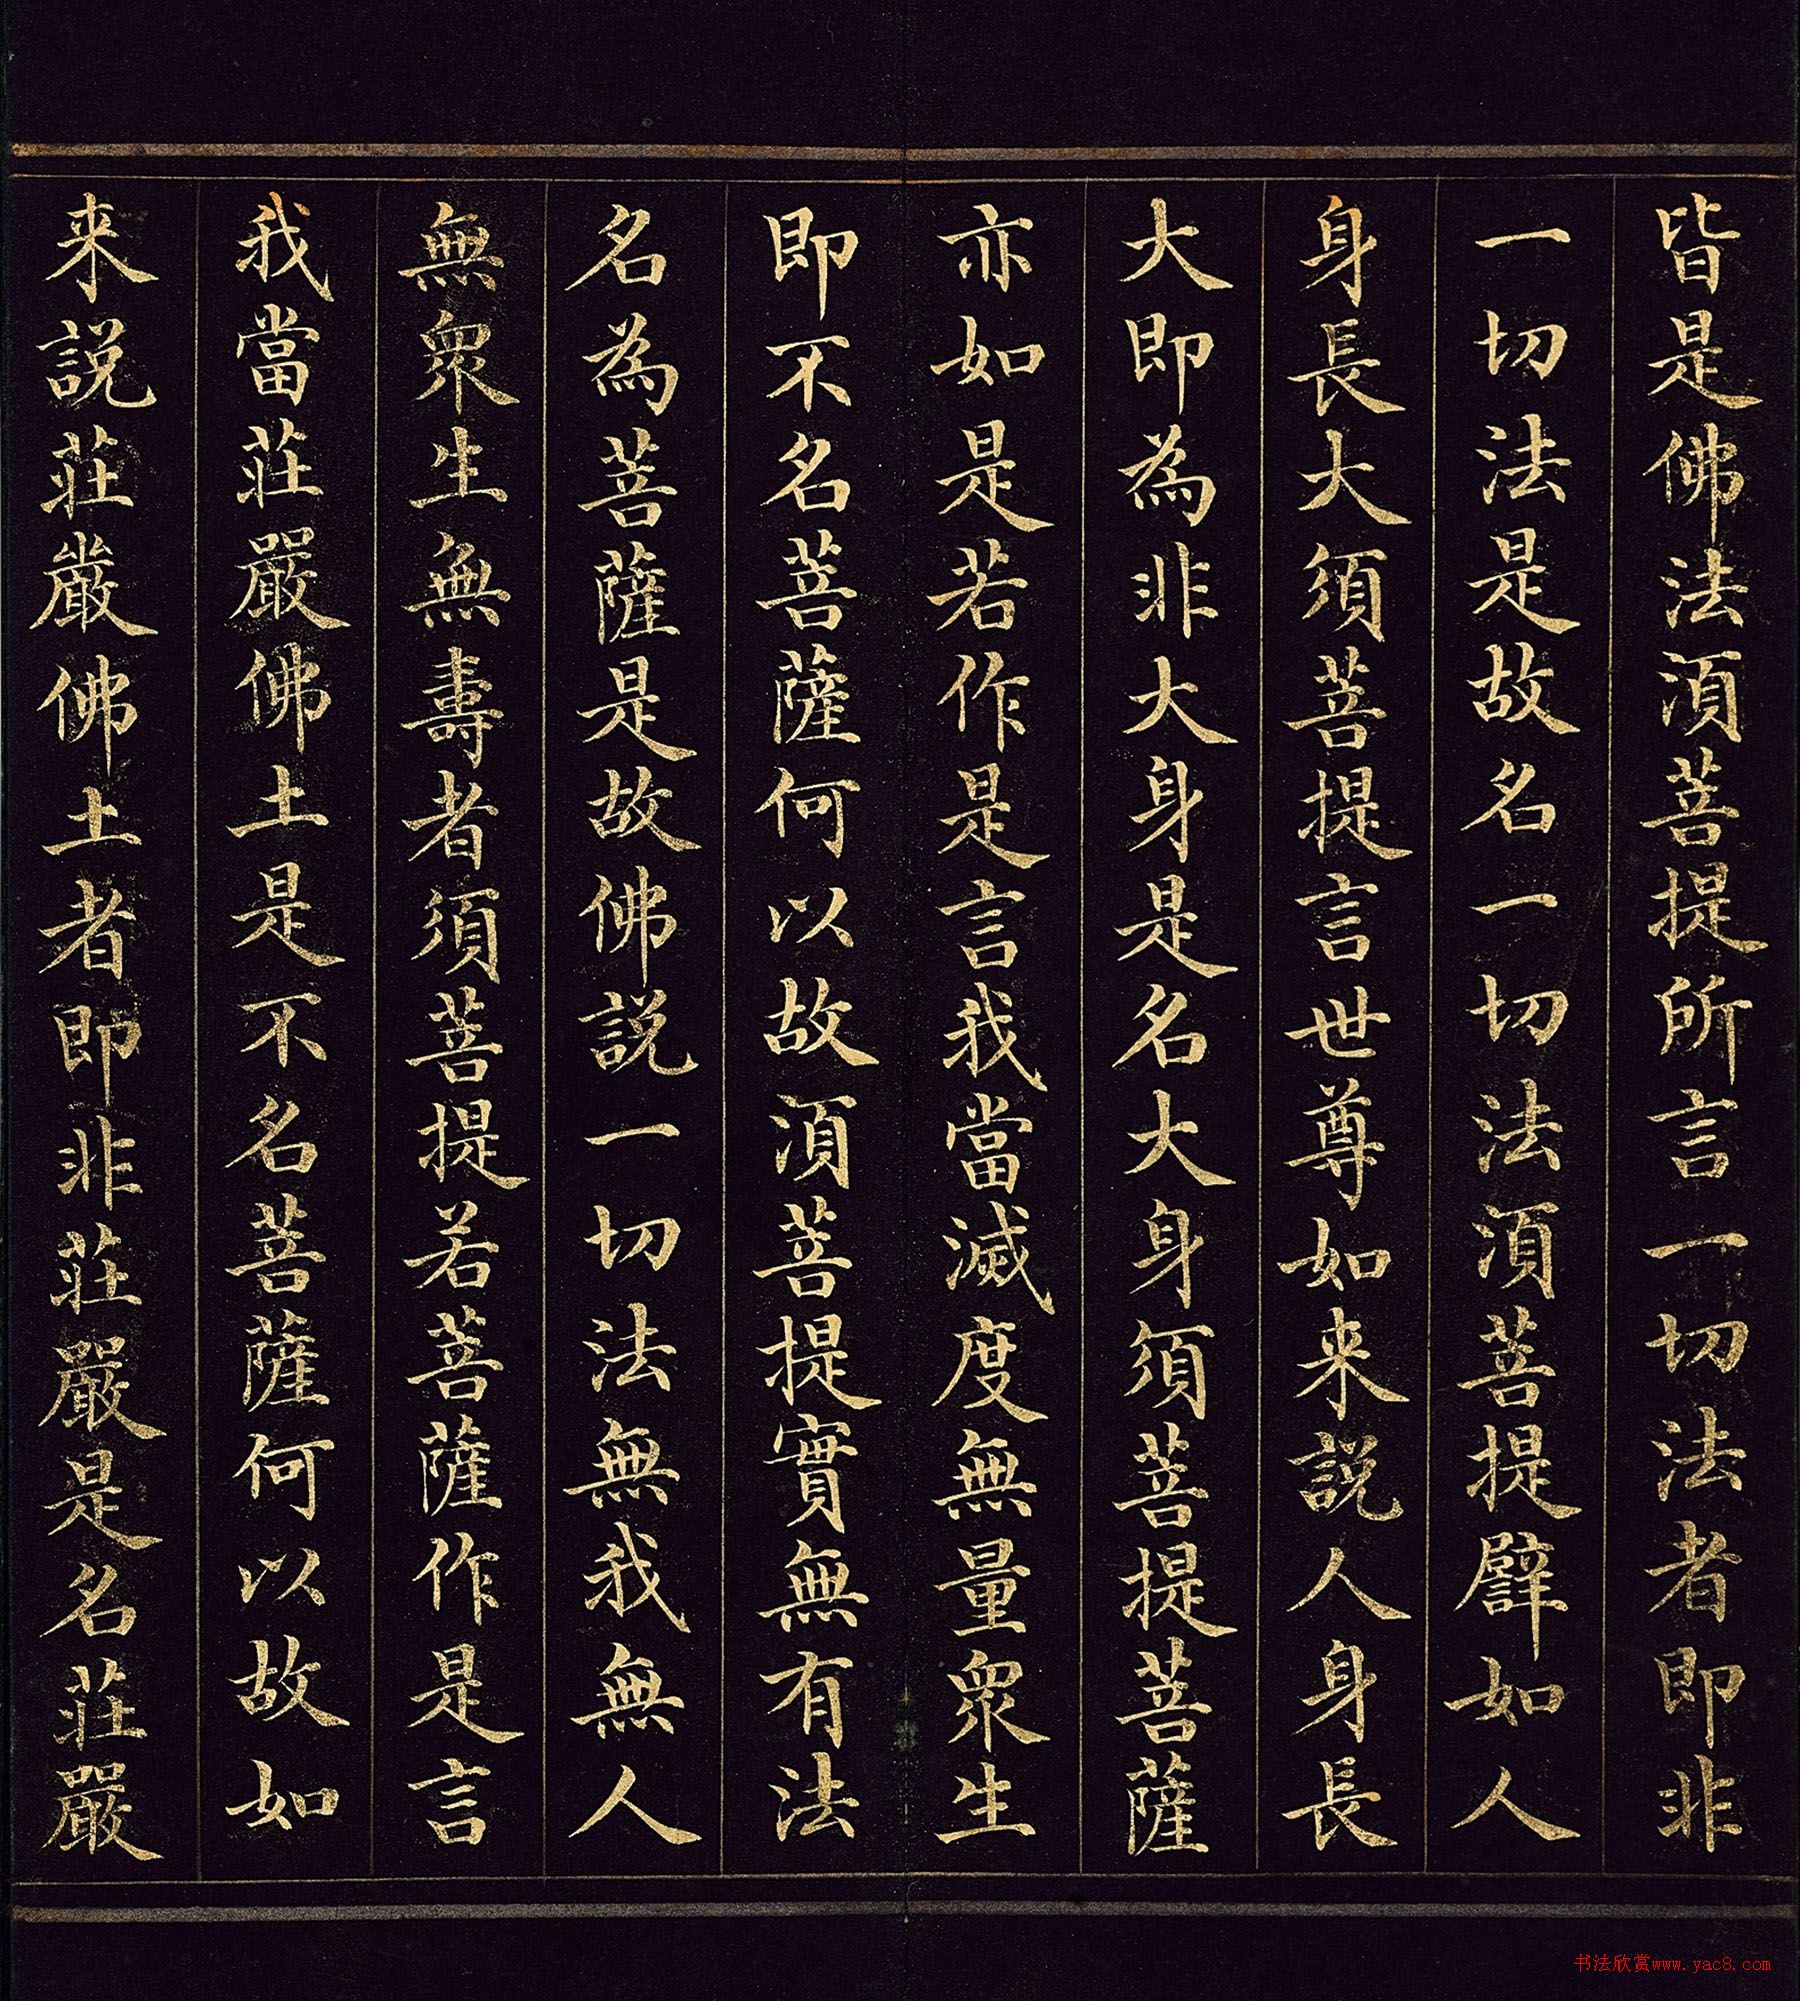 皆是佛法須菩提所言一切法者即非
一切法是故名一切法須菩提譬如人
身長大須菩提言世尊如来說人身長
大即為非大身是名大身須菩提菩薩
亦如是若作是言我當滅度無量衆生
即不名菩薩何以故須菩提實無有法
名為菩薩是故佛說一切法無我無人
無衆生無壽者須菩提若菩薩作是言
我當莊嚴佛土是不名菩薩何以故如
来說莊嚴佛土者即非莊嚴是名莊嚴
书法欣赏www.yac8.com